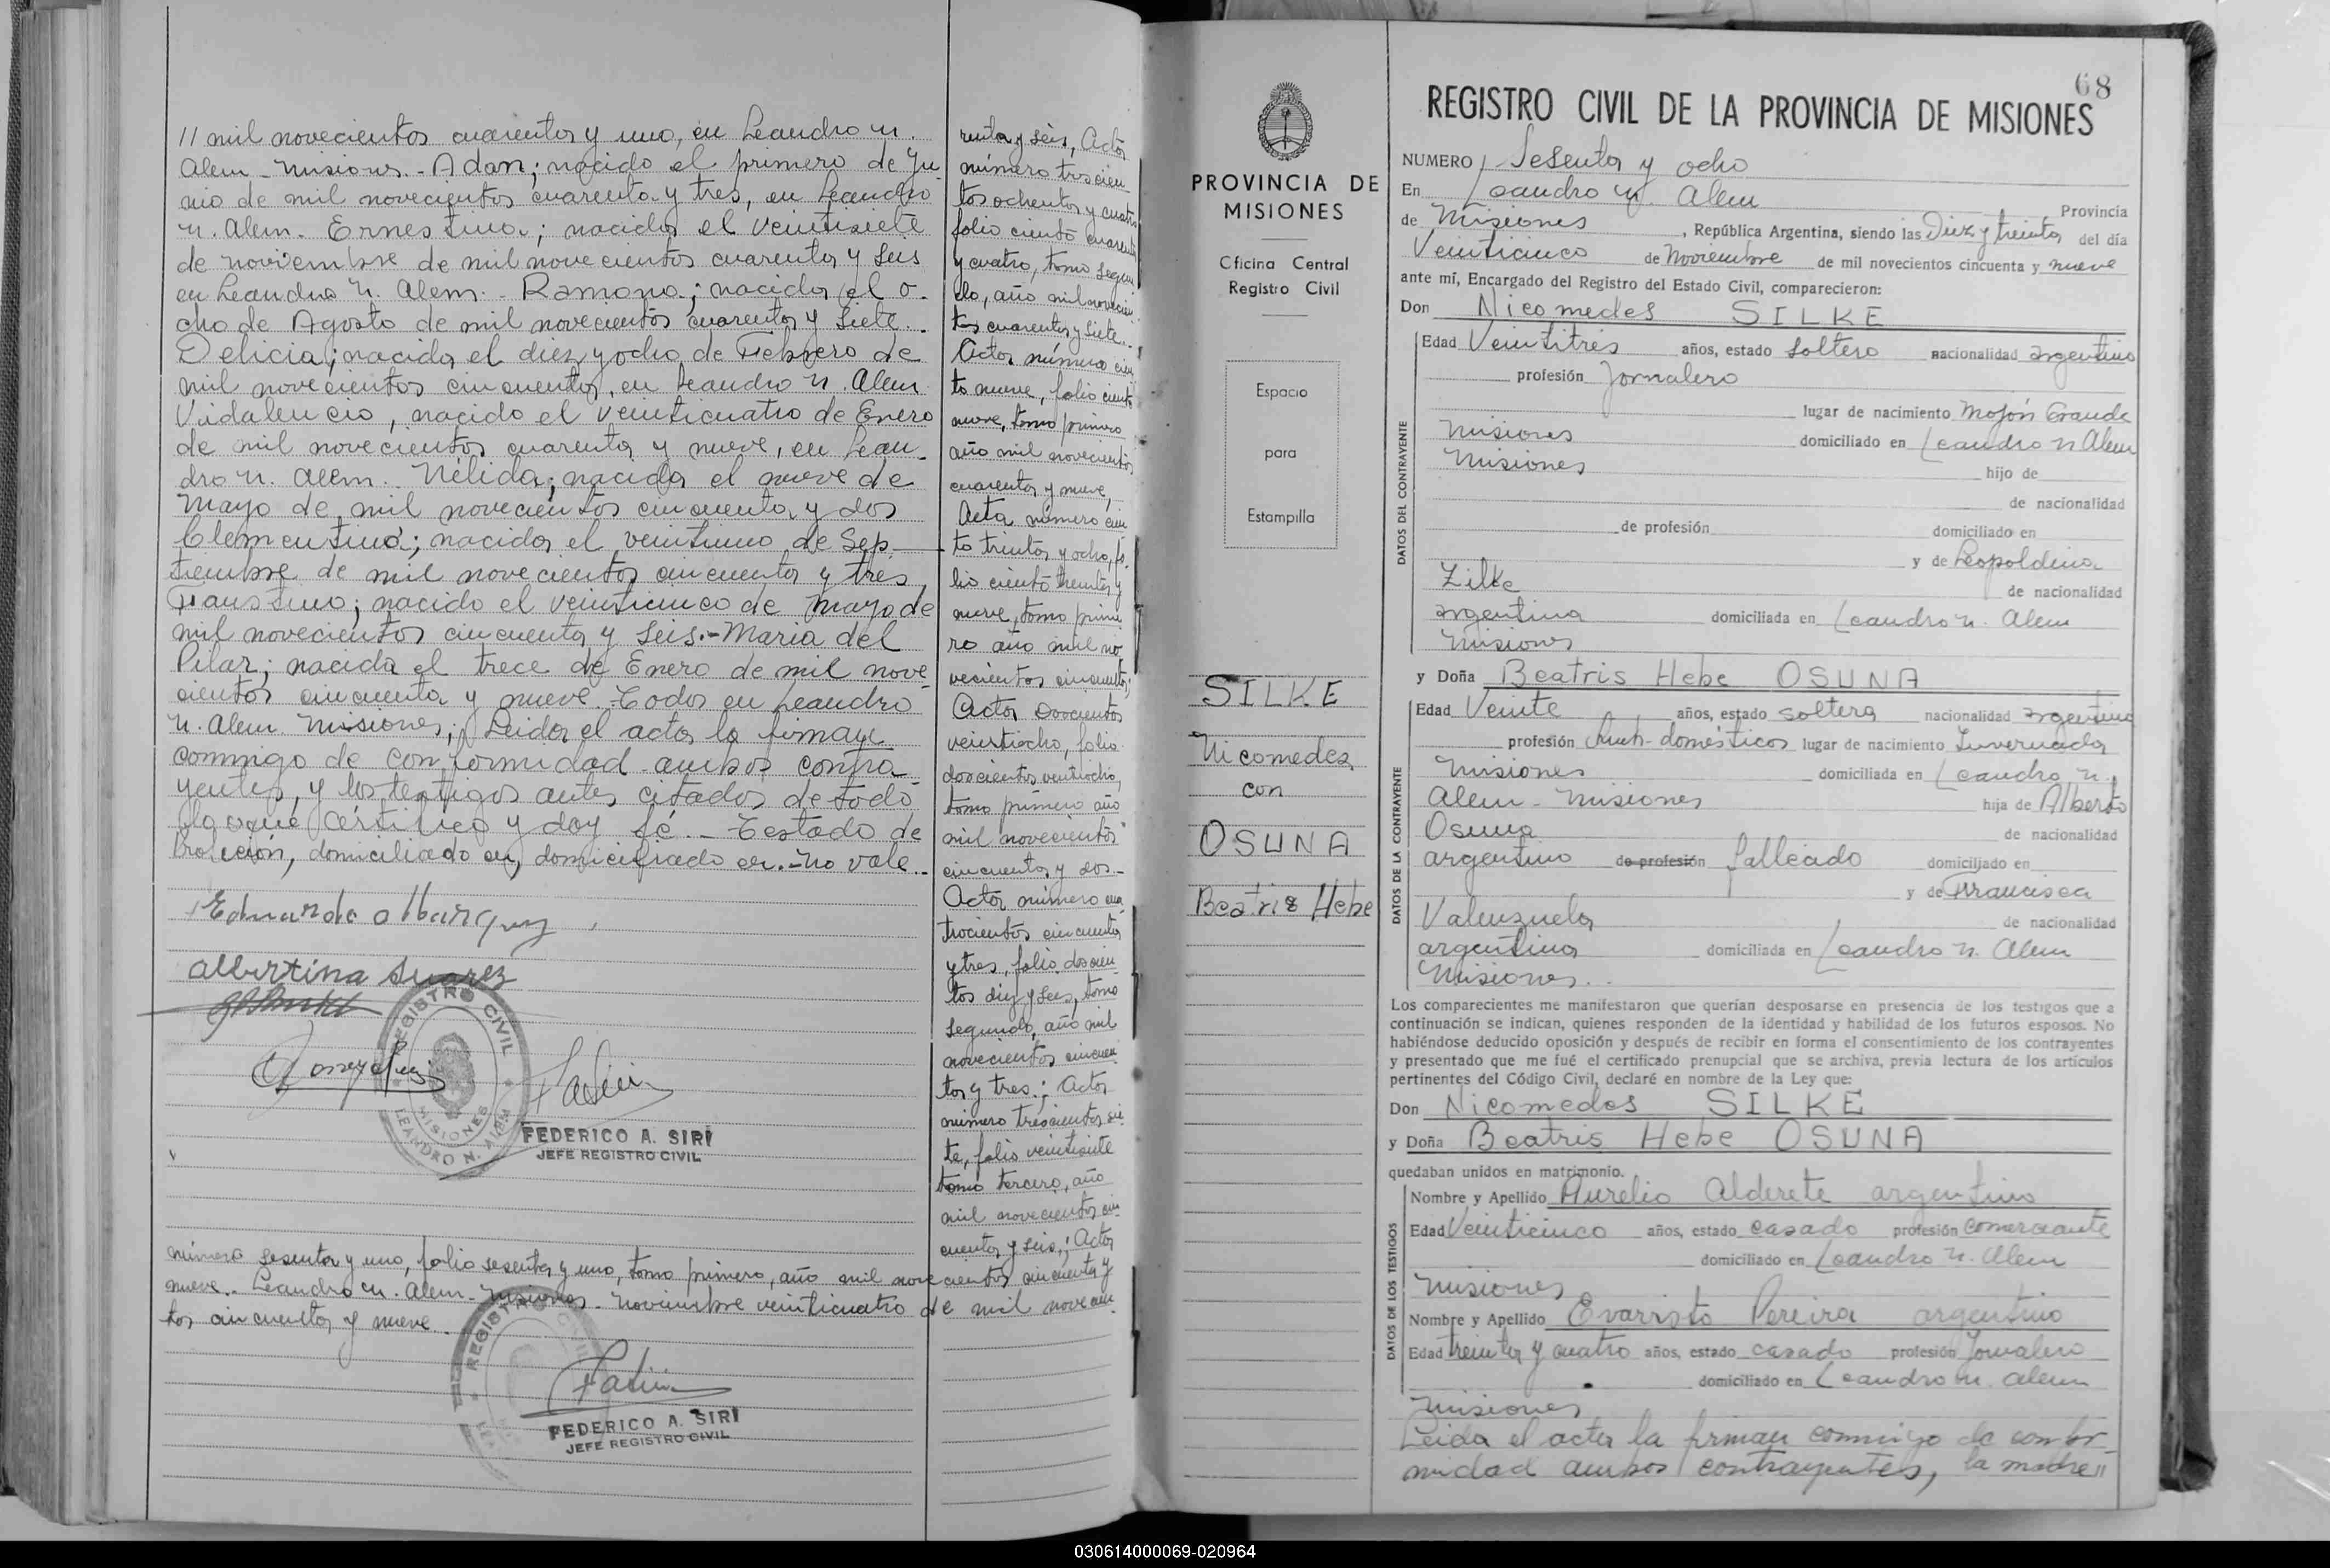 // mil novecientos cuarenta y uno, en Leandro N.
Alem - Misiones. - Adan; nacido el primero de Ju
nio de mil novecientos cuarenta y tres, en Leandro
N. Alem. Ernestina; nacida el veintisiete
de noviembre de mil novecientos cuarenta y seis
en Leandro N. Alem. - Ramona; nacida el o-
cho de Agosto de mil novecientos cuarenta y siete.-
Delicia; nacida el diez y ocho de Febrero de
mil novecientos cincuenta, en Leandro N. Alem.
Vidalencio, nacido el veinticuatro de Enero
de mil novecientos cuarenta y nueve, en Lean-
dro N. Alem. Nélida; nacida el nueve de
Mayo de mil novecientos cincuenta y dos
Clementina; nacida el veintiuno de Sep-
tiembre de mil novecientos cincuenta y tres,
Faustino; nacido el veinticinco de Mayo de
mil novecientos cincuenta y seis.- Maria del
Pilar; nacida el trece de Enero de mil nove-
cientos cincuenta y nueve. Todos en Leandro
N. Alem Misiones; Leida el acta la firman
conmigo de conformidad ambos contra-
yentes, y los testigos antes citados de todo
lo que certifico y doy fé. - Testado de
profesión, domiciliado en, domiciliado en. - no vale.-
Eduardo Marquez
Albertina Suarez
REGISTRO CIVIL
MISIONES
LEANDRO N. ALEM
FEDERICO A. SIRI
JEFE REGISTRO CIVIL
renta y seis, Acta
número trescien
tos ochenta y cuatro
folio ciento cuarenta
y cuatro, tomo segun
do, año mil novecien
tos cuarenta y siete.-
Acta número cien
to nueve, folio ciento
nueve, tomo primero
año mil novecientos
cuarenta y nueve,
Acta número cien
to treinta y ocho, fo-
lio ciento treinta y
nueve, tomo prime
ro año mil no
vecientos cincuenta;
Acta doscientos
veintiocho, folio
doscientos veintiocho,
tomo primero año
mil novecientos
cincuenta y dos.-
Acta número cua
trocientos cincuenta
y tres, folio doscien
tos diez y seis, tomo
segundo, año mil
novecientos cincuen
ta y tres.; Acta
número trescientos sie
te, folio veintisiete
tomo tercero, año
mil novecientos cin-
cuenta y seis,; Acta
número sesenta y uno, folio sesenta y uno, tomo primero, año mil novecientos cincuenta y
nueve. Leandro N. Alem - Misiones - Noviembre veinticuatro de mil novecien
tos cincuenta y nueve.
REGISTRO CIVIL
FEDERICO A. SIRI
JEFE REGISTRO CIVIL
PROVINCIA DE
MISIONES
Oficina Central
Registro Civil
Espacio
para
Estampilla
SILKE
Nicomedes
con
OSUNA
Beatris Hebe
68
REGISTRO CIVIL DE LA PROVINCIA DE MISIONES
NUMERO Sesenta y ocho
En Leandro N. Alem Provincia
de Misiones, República Argentina, siendo las Diez y treinta del día
Veinticinco de Noviembre de mil novecientos cincuenta y nueve
ante mí, Encargado del Registro del Estado Civil, comparecieron:
Don Nicomedes SILKE
DATOS DEL CONTRAYENTE
Edad Veintitres años, estado soltero nacionalidad argentino
profesión Jornalero
lugar de nacimiento Mojón Grande
Misiones domiciliado en Leandro N Alem
Misiones hijo de
de nacionalidad
de profesión domiciliado en
y de Leopoldina
Zilke de nacionalidad
argentina domiciliada en Leandro N. Alem
Misiones
y Doña Beatris Hebe OSUNA
DATOS DE LA CONTRAYENTE
Edad Veinte años, estado soltera nacionalidad argentina
profesión Queh-domésticos lugar de nacimiento Invernada
Misiones domiciliada en Leandro N.
Alem - Misiones hija de Alberto
Osuna de nacionalidad
argentino de profesión fallecido domiciliado en
y de Francisca
Valenzuela de nacionalidad
argentina domiciliada en Leandro N. Alem
Misiones.
Los comparecientes me manifestaron que querían desposarse en presencia de los testigos que a
continuación se indican, quienes responden de la identidad y habilidad de los futuros esposos. No
habiéndose deducido oposición y después de recibir en forma el consentimiento de los contrayentes
y presentado que me fué el certificado prenupcial que se archiva, previa lectura de los artículos
pertinentes del Código Civil, declaré en nombre de la Ley que:
Don Nicomedes SILKE
y Doña Beatris Hebe OSUNA
quedaban unidos en matrimonio.
DATOS DE LOS TESTIGOS
Nombre y Apellido Aurelio Alderete argentino
Edad Veinticinco años, estado casado profesión comerciante
domiciliado en Leandro N. Alem
Misiones
Nombre y Apellido Evarristo Pereira argentino
Edad treinta y cuatro años, estado casado profesión Jornalero
domiciliado en Leandro N. Alem
Misiones
Leida el acta la firman conmigo de confor-
midad ambos contrayentes, la madre //
030614000069-020964